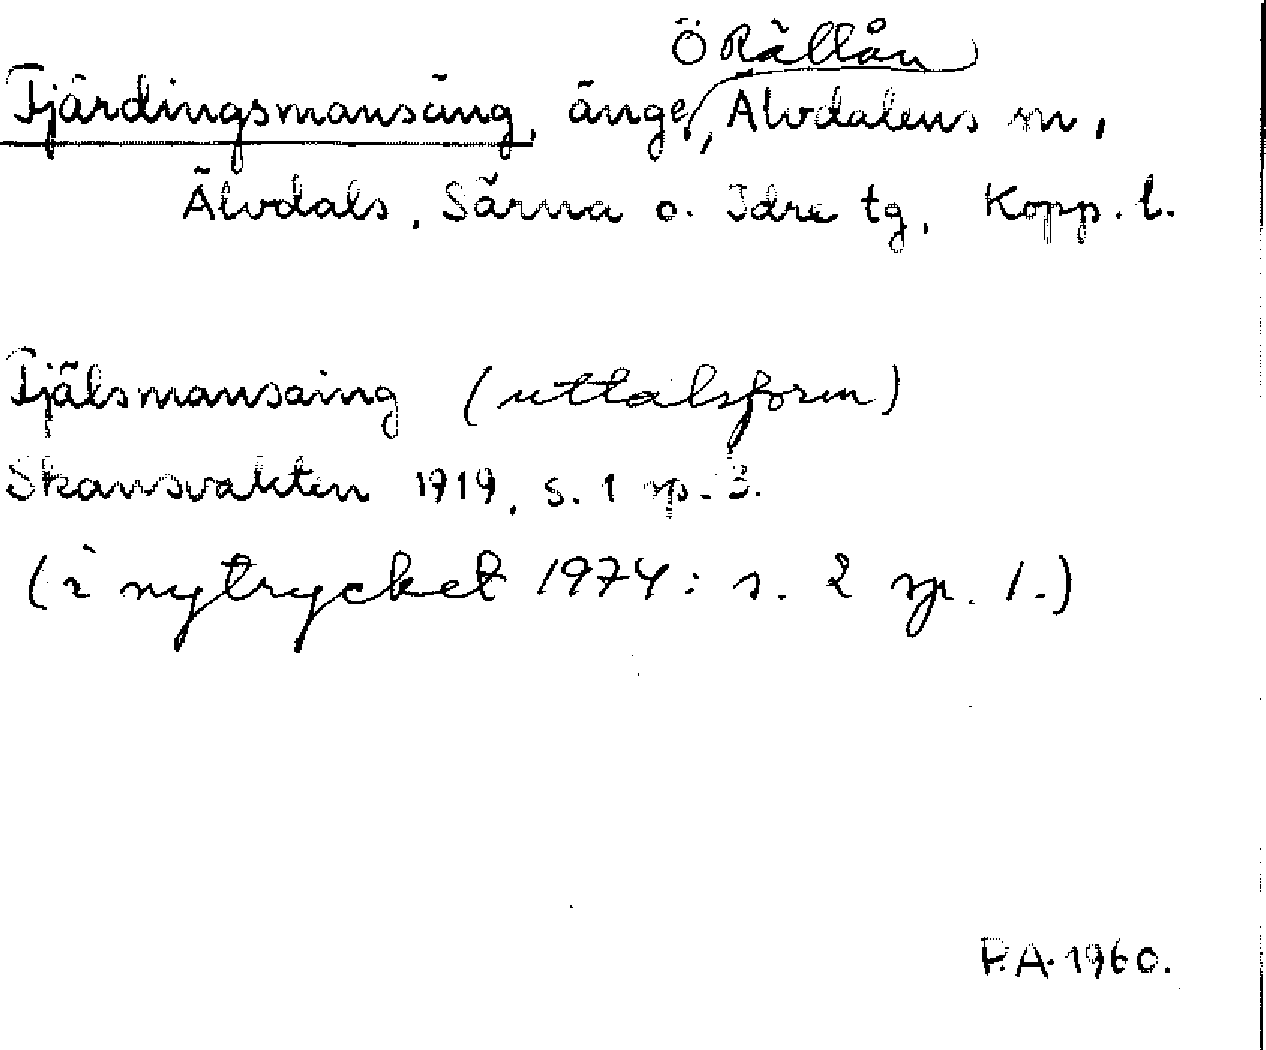 Ö Rällån
Fjärdingsmansäng, änge, Älvdalens m,
Älvdals, Särna o. Idre tg, Kopp. l.
Fjälsmansaing (uttalsform)
Skansvakten 1919, s. 1 sp. 3.
(i nytrycket 1974: s. 2 sp. 1.)
P.A. 1960.